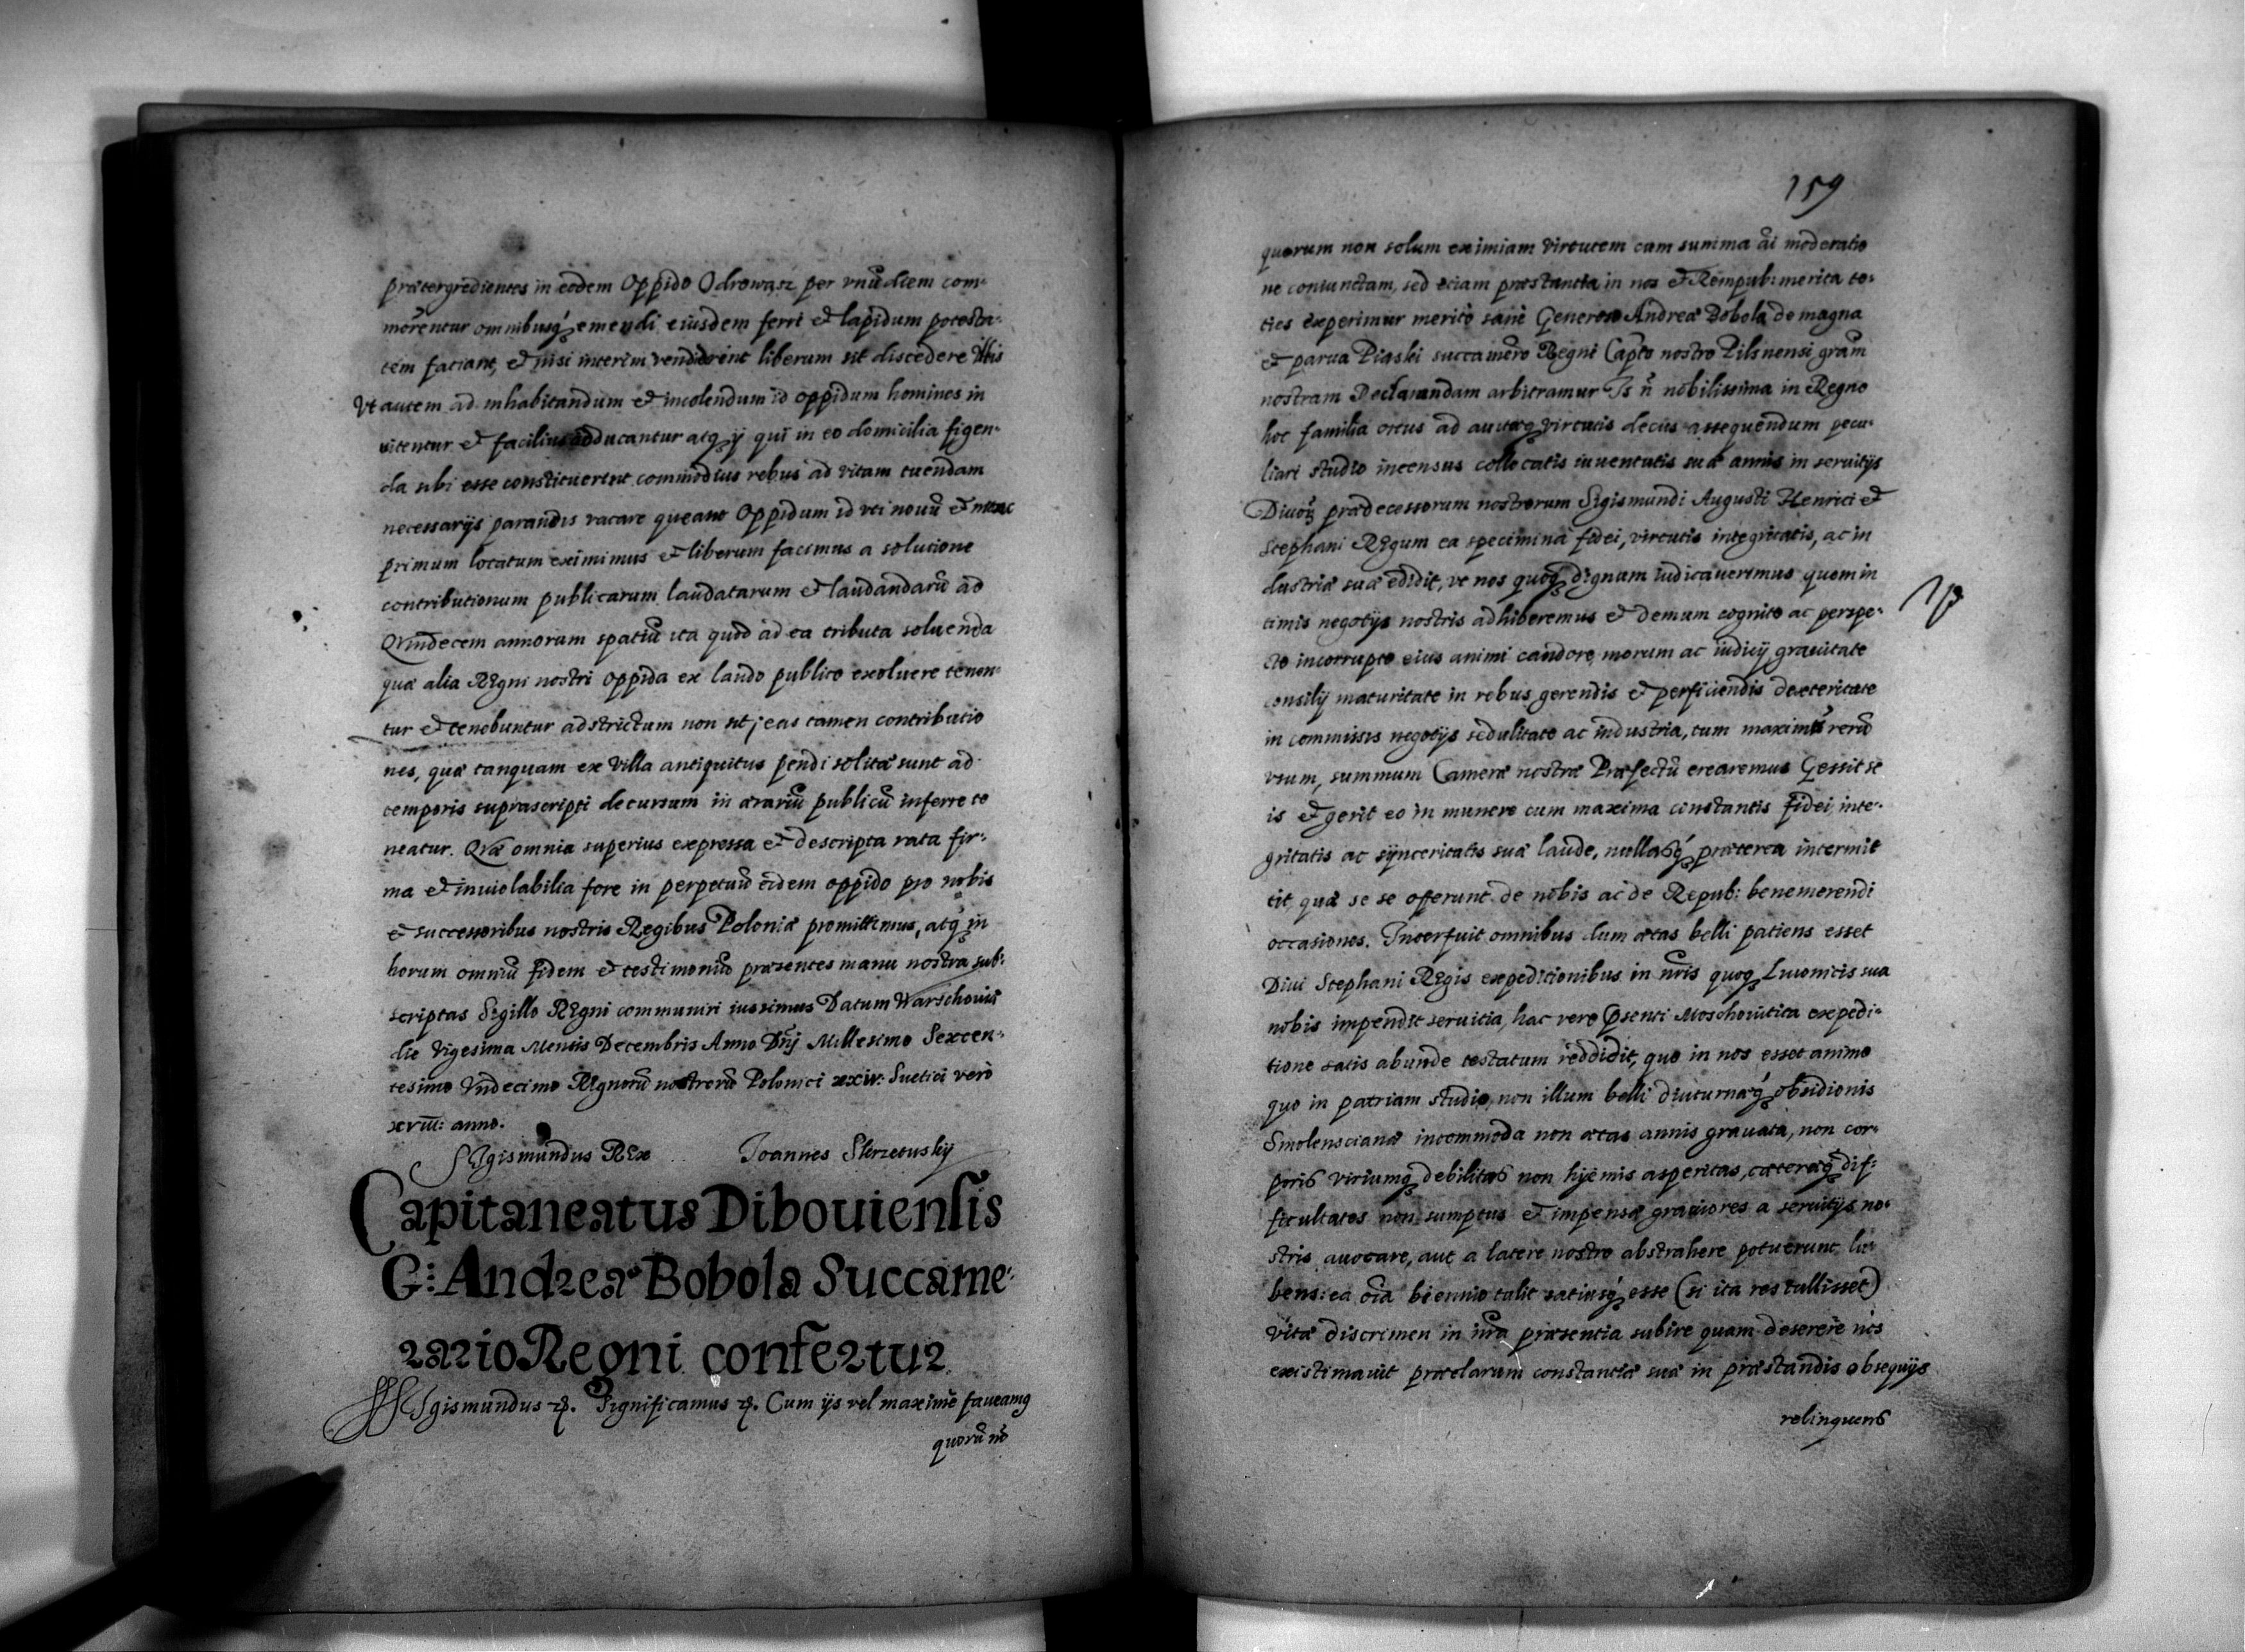 prætergredientes in eodem Oppido Odrowąsz per vnũ diem com-
morentur omnibusq́ꝫ emendi eiusdem ferri et lapidum potesta-
tem faciant, et nisi interim vendiderint liberum sit discedere illis
Vt autem ad inhabitandum et incolendum id oppidum homines in
uitentur et facilius adducantur atqꝫ ij qui in eo domicilia figen-
da sibi esse constituerint commodius rebus ad vitam tuendam
necessarijs parandis vacare queant Oppidum id vti nouũ et nunc
primum locatum eximimus et liberum facimus a solutione
contributionum publicarum laudatarum et laudandarũ ad
Quindecem annorum spatiũ ita quod ad ea tributa soluenda
quæ alia Regni nostri oppida ex laudo publico exoluere tenen-
tur et tenebuntur adstrictum non sit; eas tamen contributio
nes, quæ tanquam ex Villa antiquitus pendi solitæ sunt ad
temporis suprascripti decursum in ærariũ publicũ inferre te
neatur. Quæ omnia superius expressa et descripta rata fir-
ma et inuiolabilia fore in perpetuũ eidem oppido pro nobis
et successoribus nostris Regibus Poloniæ promittimus, atq́ꝫ in
horum omniũ fidem et testimoniũ præsentes manu nostra sub-
scriptas Sigillo Regni communiri iussimus Datum Warschouiæ
die Vigesima Mensis Decembris Anno Dñj Millesimo Sexcen-
tesimo Vndecimo Regnorũ nostrorũ Polonici xxiv. Suetici verò
xviii: anno.
Sigismundus Rex Joannes Skrzetuskij
Capitaneatus Dibouiensis
G: Andreæ Bobola Succame-
rario Regni confertur
Sigismundus ꝛꝭ. Significamus ꝛꝭ. Cum ijs vel maximè faueamꝰ
quorũ nõ
159
quorum non solum eximiam virtutem cum summa ãi moderatio
ne coniunctam, sed etiam præstantia in nos et Rempub: merita to-
ties experimur meritò sanè Generoso Andreæ Bobola de magna
et parua Piaski succamero Regni Capto nostro Pilsnensi grãm
nostram Declarandam arbitramur Is ñ nobilissima in Regno
hoc familia ortus ad auitæqꝫ virtutis decus assequendum pecu-
liari studio incensus collocatis iuuentutis suæ annis in seruitijs
Diuoꝝ prædecessorum nostrorum Sigismundi Augusti Henrici et
Stephani Regum ea specimina fidei, virtutis integritatis, ac in
dustriæ suæ edidit, vt nos quoqꝫ dignum iudicauerimus quem in
timis negotijs nostris adhiberemus et demum cognito ac perspe-
cto incorrupto eius animi candore, morum ac iudicij grauitate
consilij maturitate in rebus gerendis et perficiendis dexteritate
in commissis negotijs sedulitate ac industria, tum maximo rerũ
vsum, summum Cameræ nostræ Præfectũ crearemus Gessit se
is et gerit eo in munere cum maxima constantis fidei, inte-
gritatis ac synceritatis suæ laude, nullasq́ꝫ præterea intermit
tit, quæ se se offerunt de nobis ac de Repub: benemerendi
occasiones. Interfuit omnibus dum ætas belli patiens esset
Diui Stephani Regis expeditionibus in nr̃is quoqꝫ Liuonicis sua
nobis impendit seruitia, hac vero p̃senti Moschouitica expedi-
tione satis abunde testatum reddidit, quo in nos esset animo
quo in patriam studio, non illum belli diuturnæq́ꝫ obsidionis
Smolenscianæ incommoda non ætas annis grauata, non cor-
poris viriumqꝫ debilitas non hyemis asperitas, cæteræq́ꝫ dif-
ficultates non sumptus et impensæ grauiores a seruitijs no-
stris auocare, aut a latere nostro abstrahere potuerunt, lu-
bens: ea oĩa biennio tulit satiusq́ꝫ esse (si ita res tullisset)
vitæ discrimen in nr̃a præsentia subire quam deserere nos
existimauit præclarum constantiæ suæ in præstandis obsequijs
relinquens